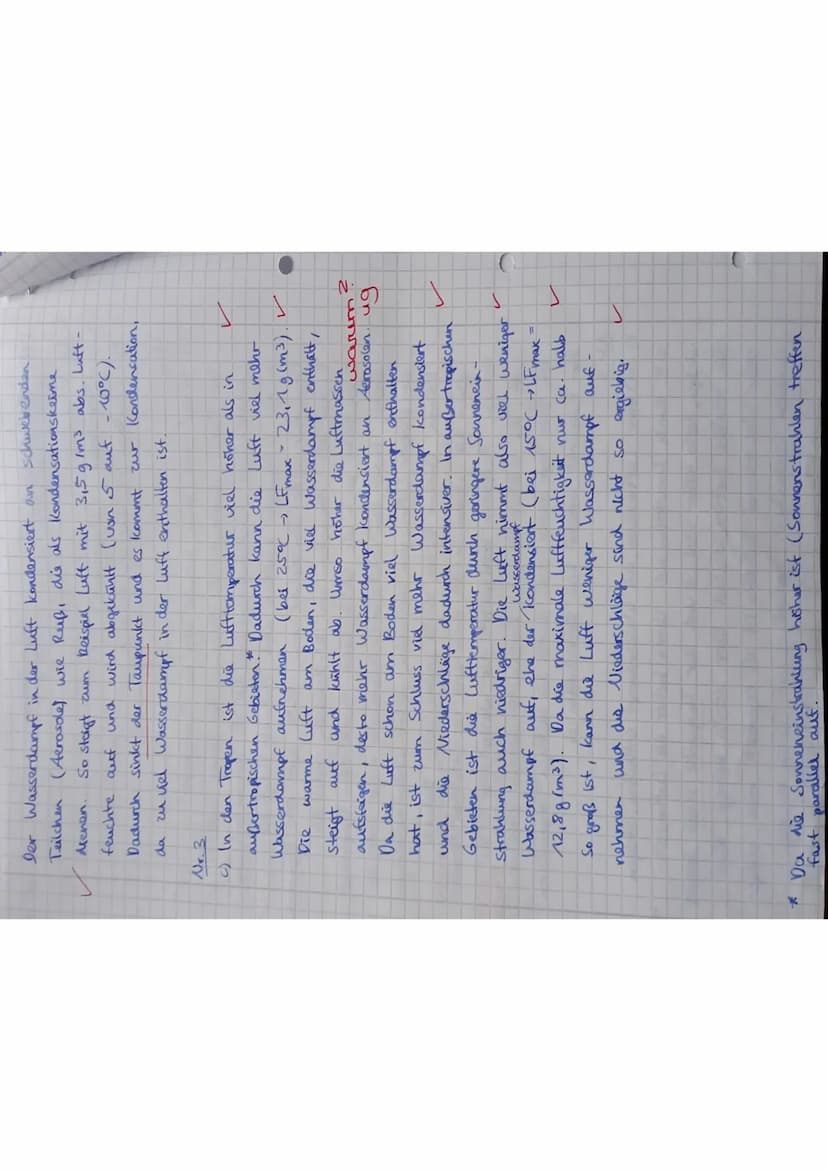 Der Wasserdampf in der Luft kondensiert an schwebenden
Teilchen (Aerosole) wie Ruß, die als Kondensationskeime
dienen. So steigt zum Beispiel Luft mit 3,5 g/m³ abs. Luft-
feuchte auf und wird abgekühlt (von 5 auf -10°C).
Dadurch sinkt der Taupunkt und es kommt zur Kondensation,
da zu viel Wasserdampf in der Luft enthalten ist.
Nr. 3
c) In den Tropen ist die Lufttemperatur viel höher als in
außertropischen Gebieten.* Dadurch kann die Luft viel mehr
Wasserdampf aufnehmen (bei 25°C → LFmax = 23,1 g/m³).
Die warme Luft am Boden, die viel Wasserdampf enthält,
steigt auf und kühlt ab. Umso höher die Luftmassen
warum?
aufsteigen, desto mehr Wasserdampf kondensiert an Aerosolen. ug
Da die Luft schon am Boden viel Wasserdampf enthalten
hat, ist zum Schluss viel mehr Wasserdampf kondensiert
und die Niederschläge dadurch intensiver. In außertropischen
Gebieten ist die Lufttemperatur durch geringere Sonnenein-
strahlung auch niedriger. Die Luft nimmt also viel weniger
Wasserdampf auf, ehe der Wasserdampf kondensiert (bei 15°C → LFmax =
12,8 g/m³). Da die maximale Luftfeuchtigkeit nur ca. halb
so groß ist, kann die Luft weniger Wasserdampf auf-
nehmen und die Niederschläge sind nicht so ergiebig.
* Da die Sonneneinstrahlung höher ist (Sonnenstrahlen treffen
fast parallel auf.